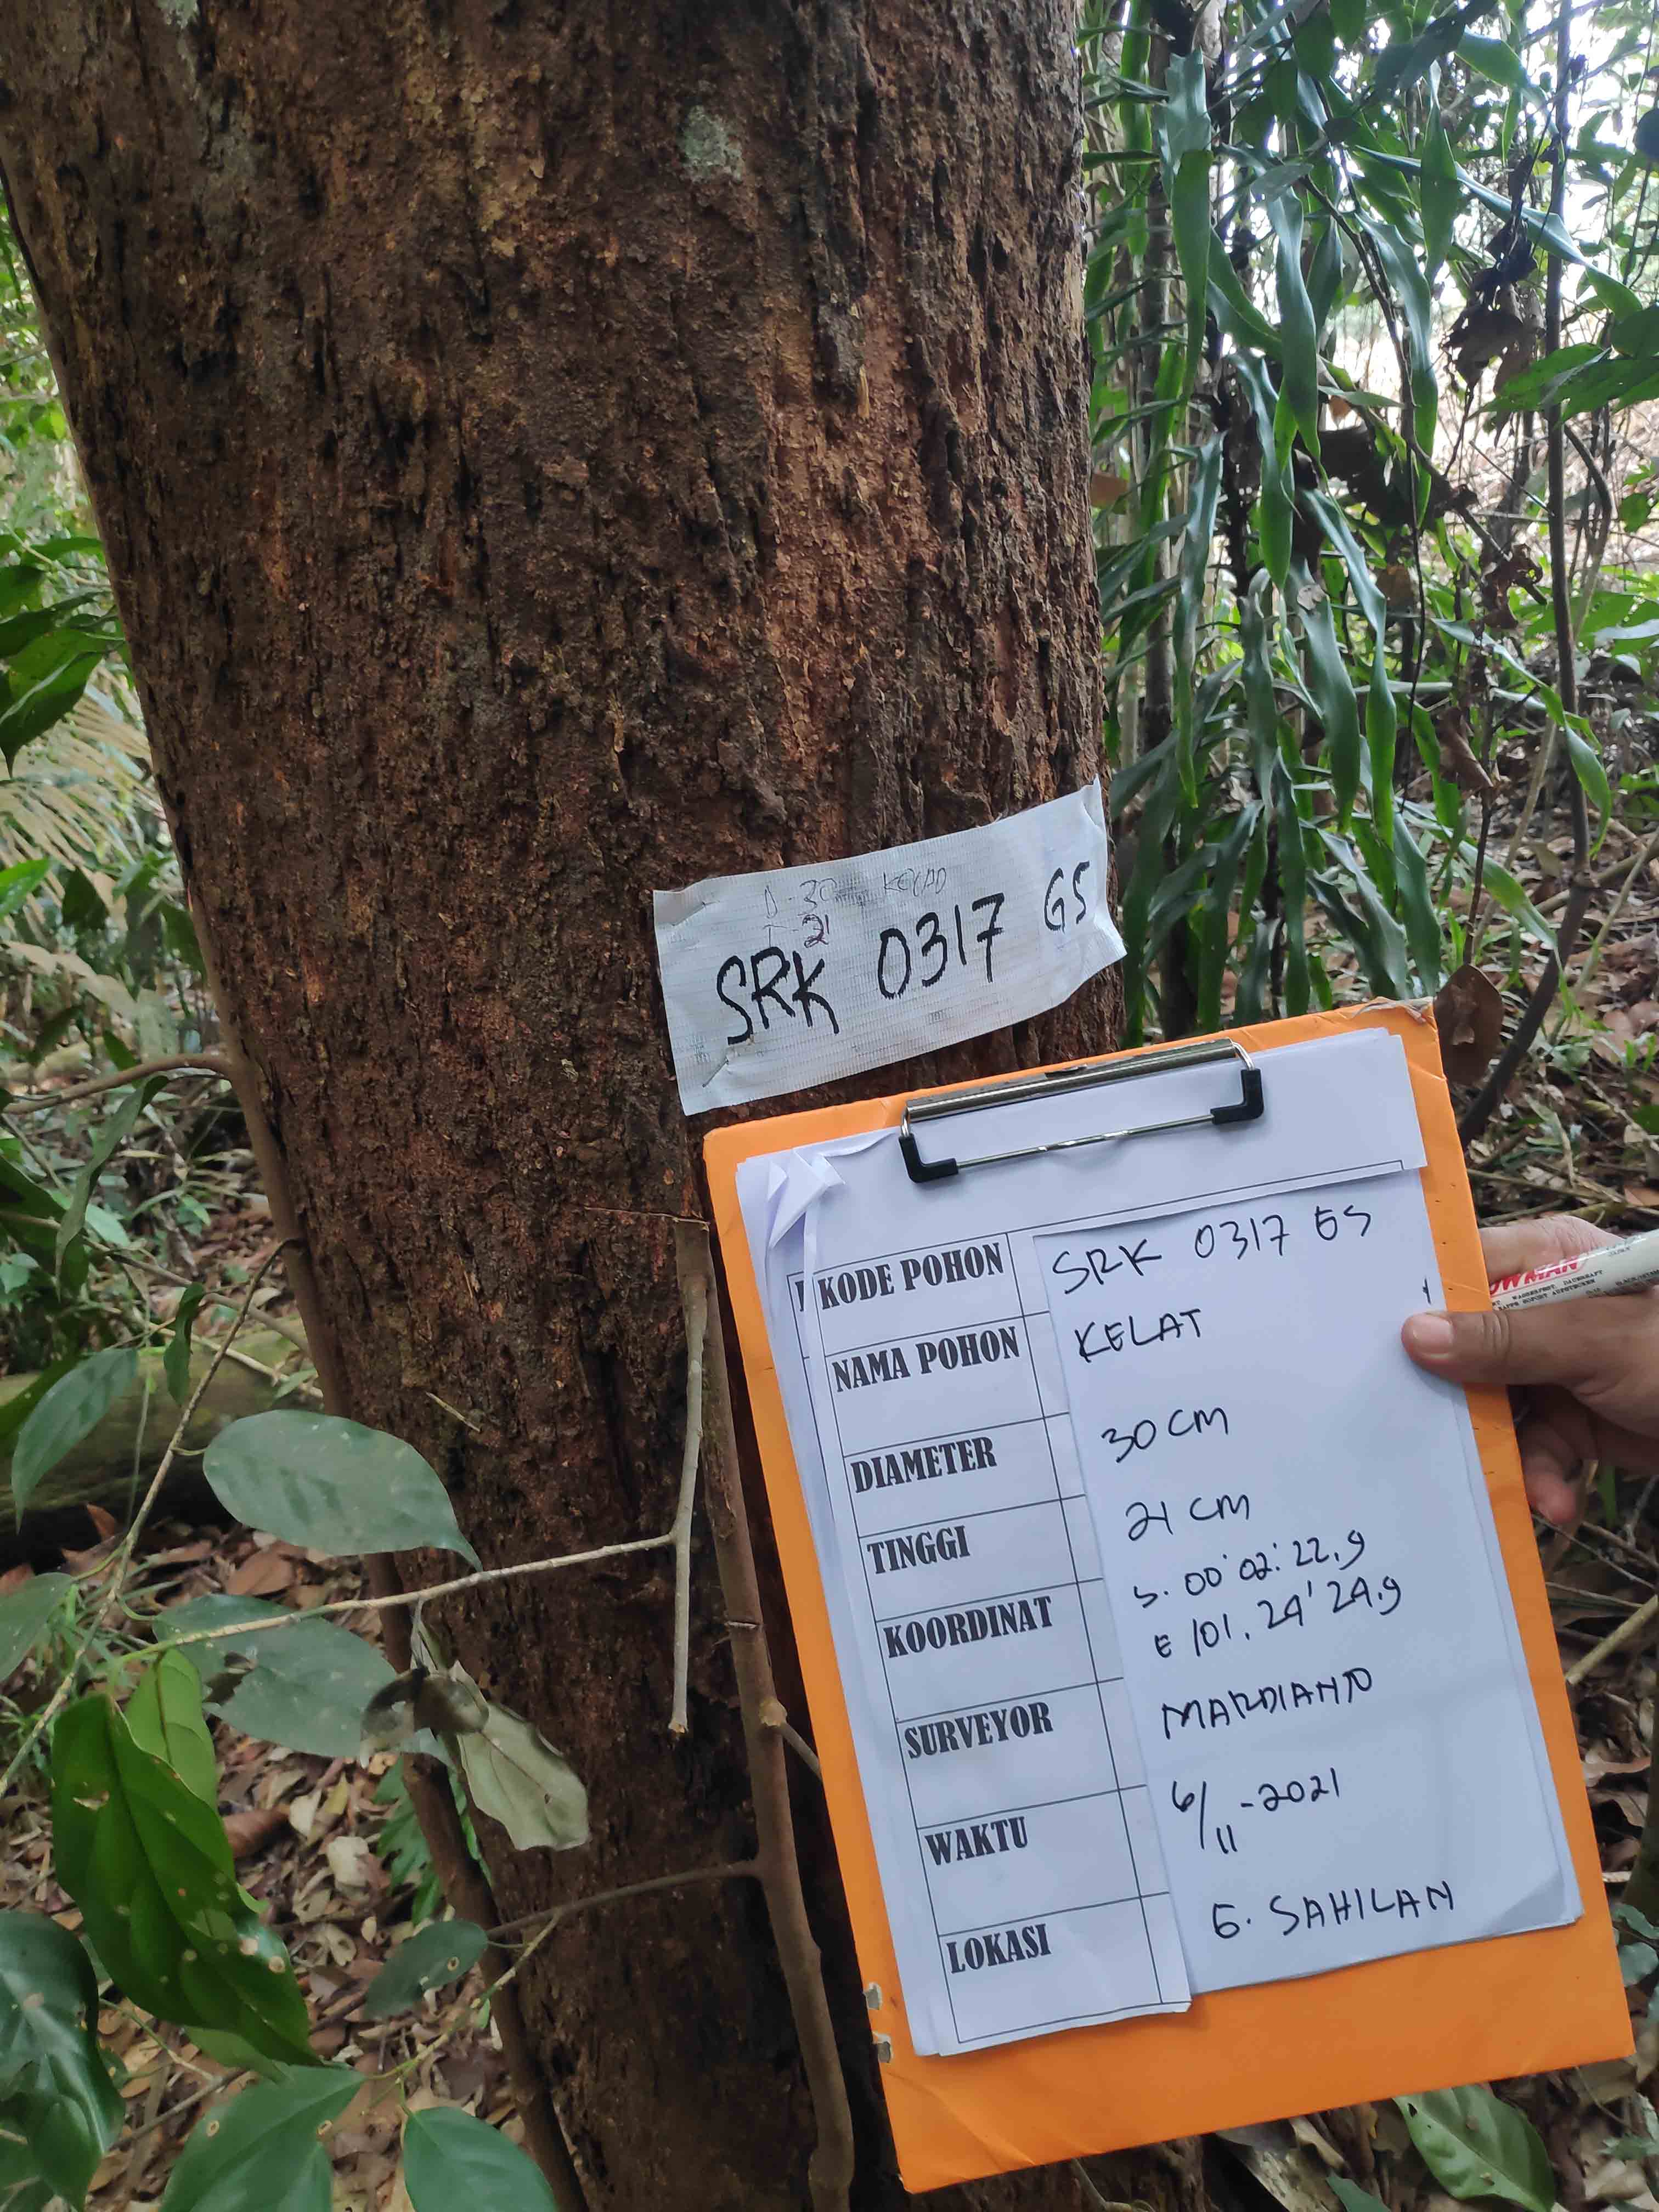 D-30 KELAD
T-21
SRK 0317 GS
KODE POHON SRK 0317 GS
NAMA POHON KELAT
DIAMETER 30 CM
TINGGI 21 CM
KOORDINAT S. 00°02'.22,9
E 101. 24' 24.9
SURVEYOR MARDIANTO
WAKTU 6/11-2021
LOKASI G. SAHILAN
OWMAN